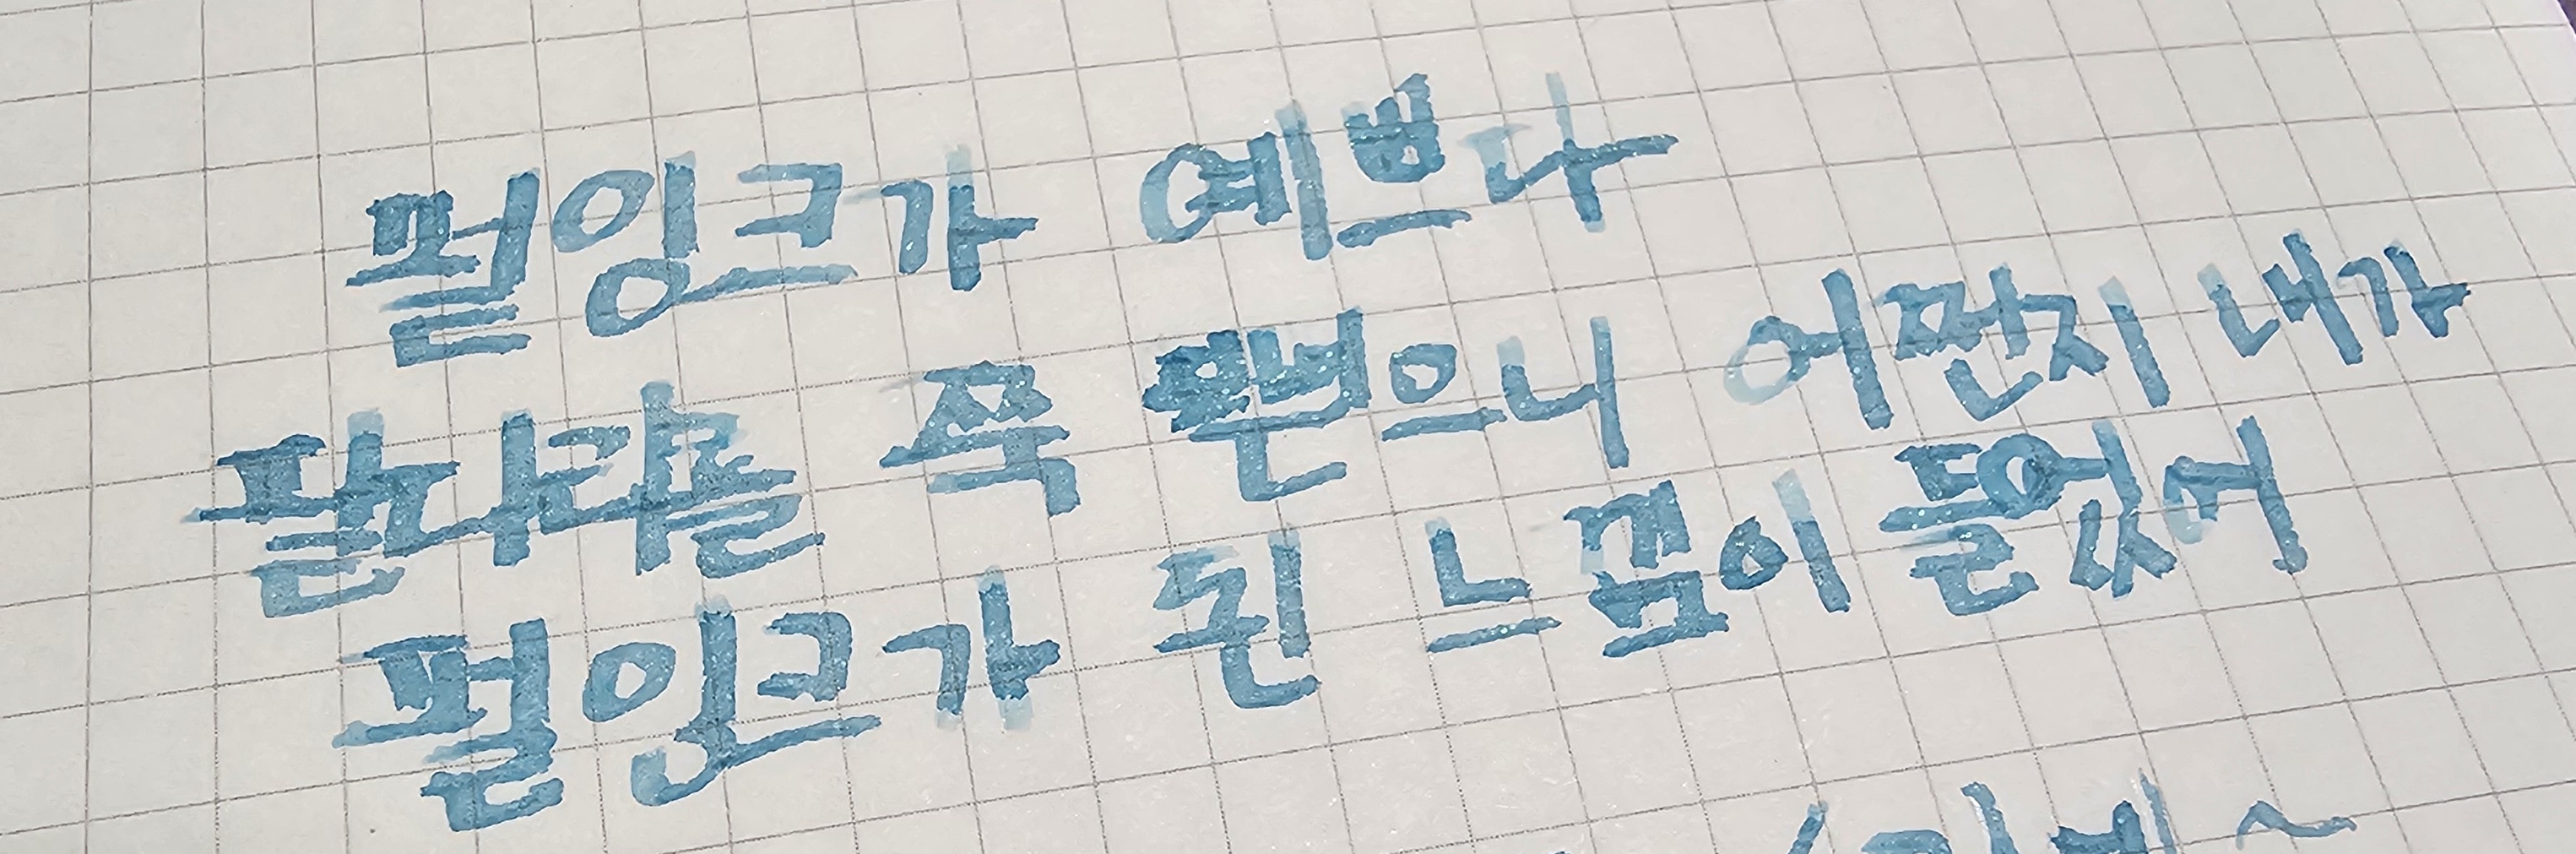 펄잉크가 예쁘다
팔나를 쭉 뻗으니 어쩐지 내가
펄잉크가 된 느낌이 들었어